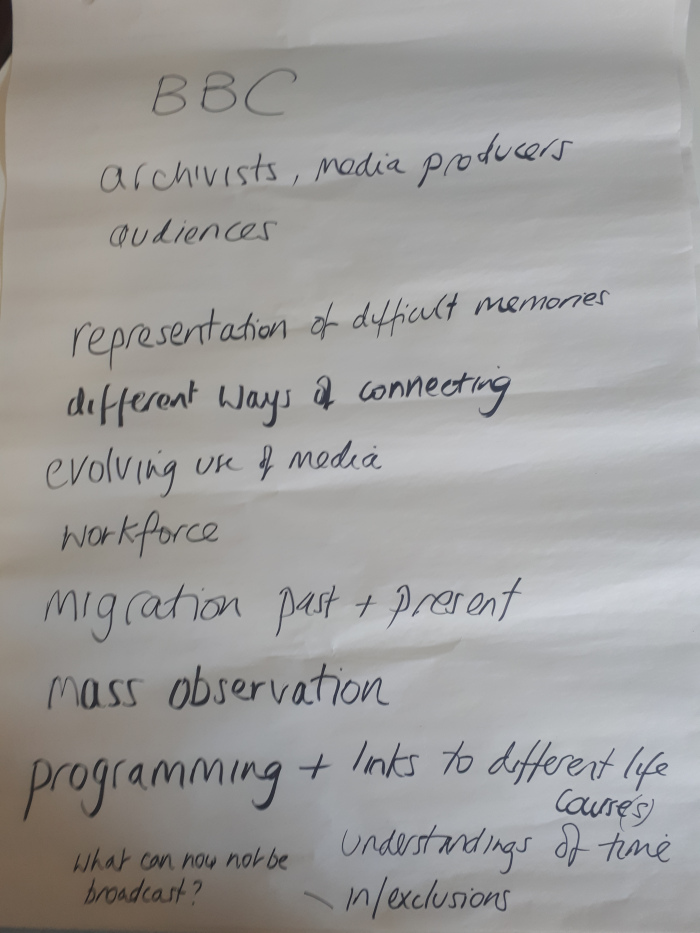 BBC
archivists, media producers
audiences
representation of difficult memories
different ways of connecting
evolving use of media
workforce
migration past + present
mass observation
programming + links to different life
course(s)
understandings of time
What can now not be
broadcast?
\ in/exclusions